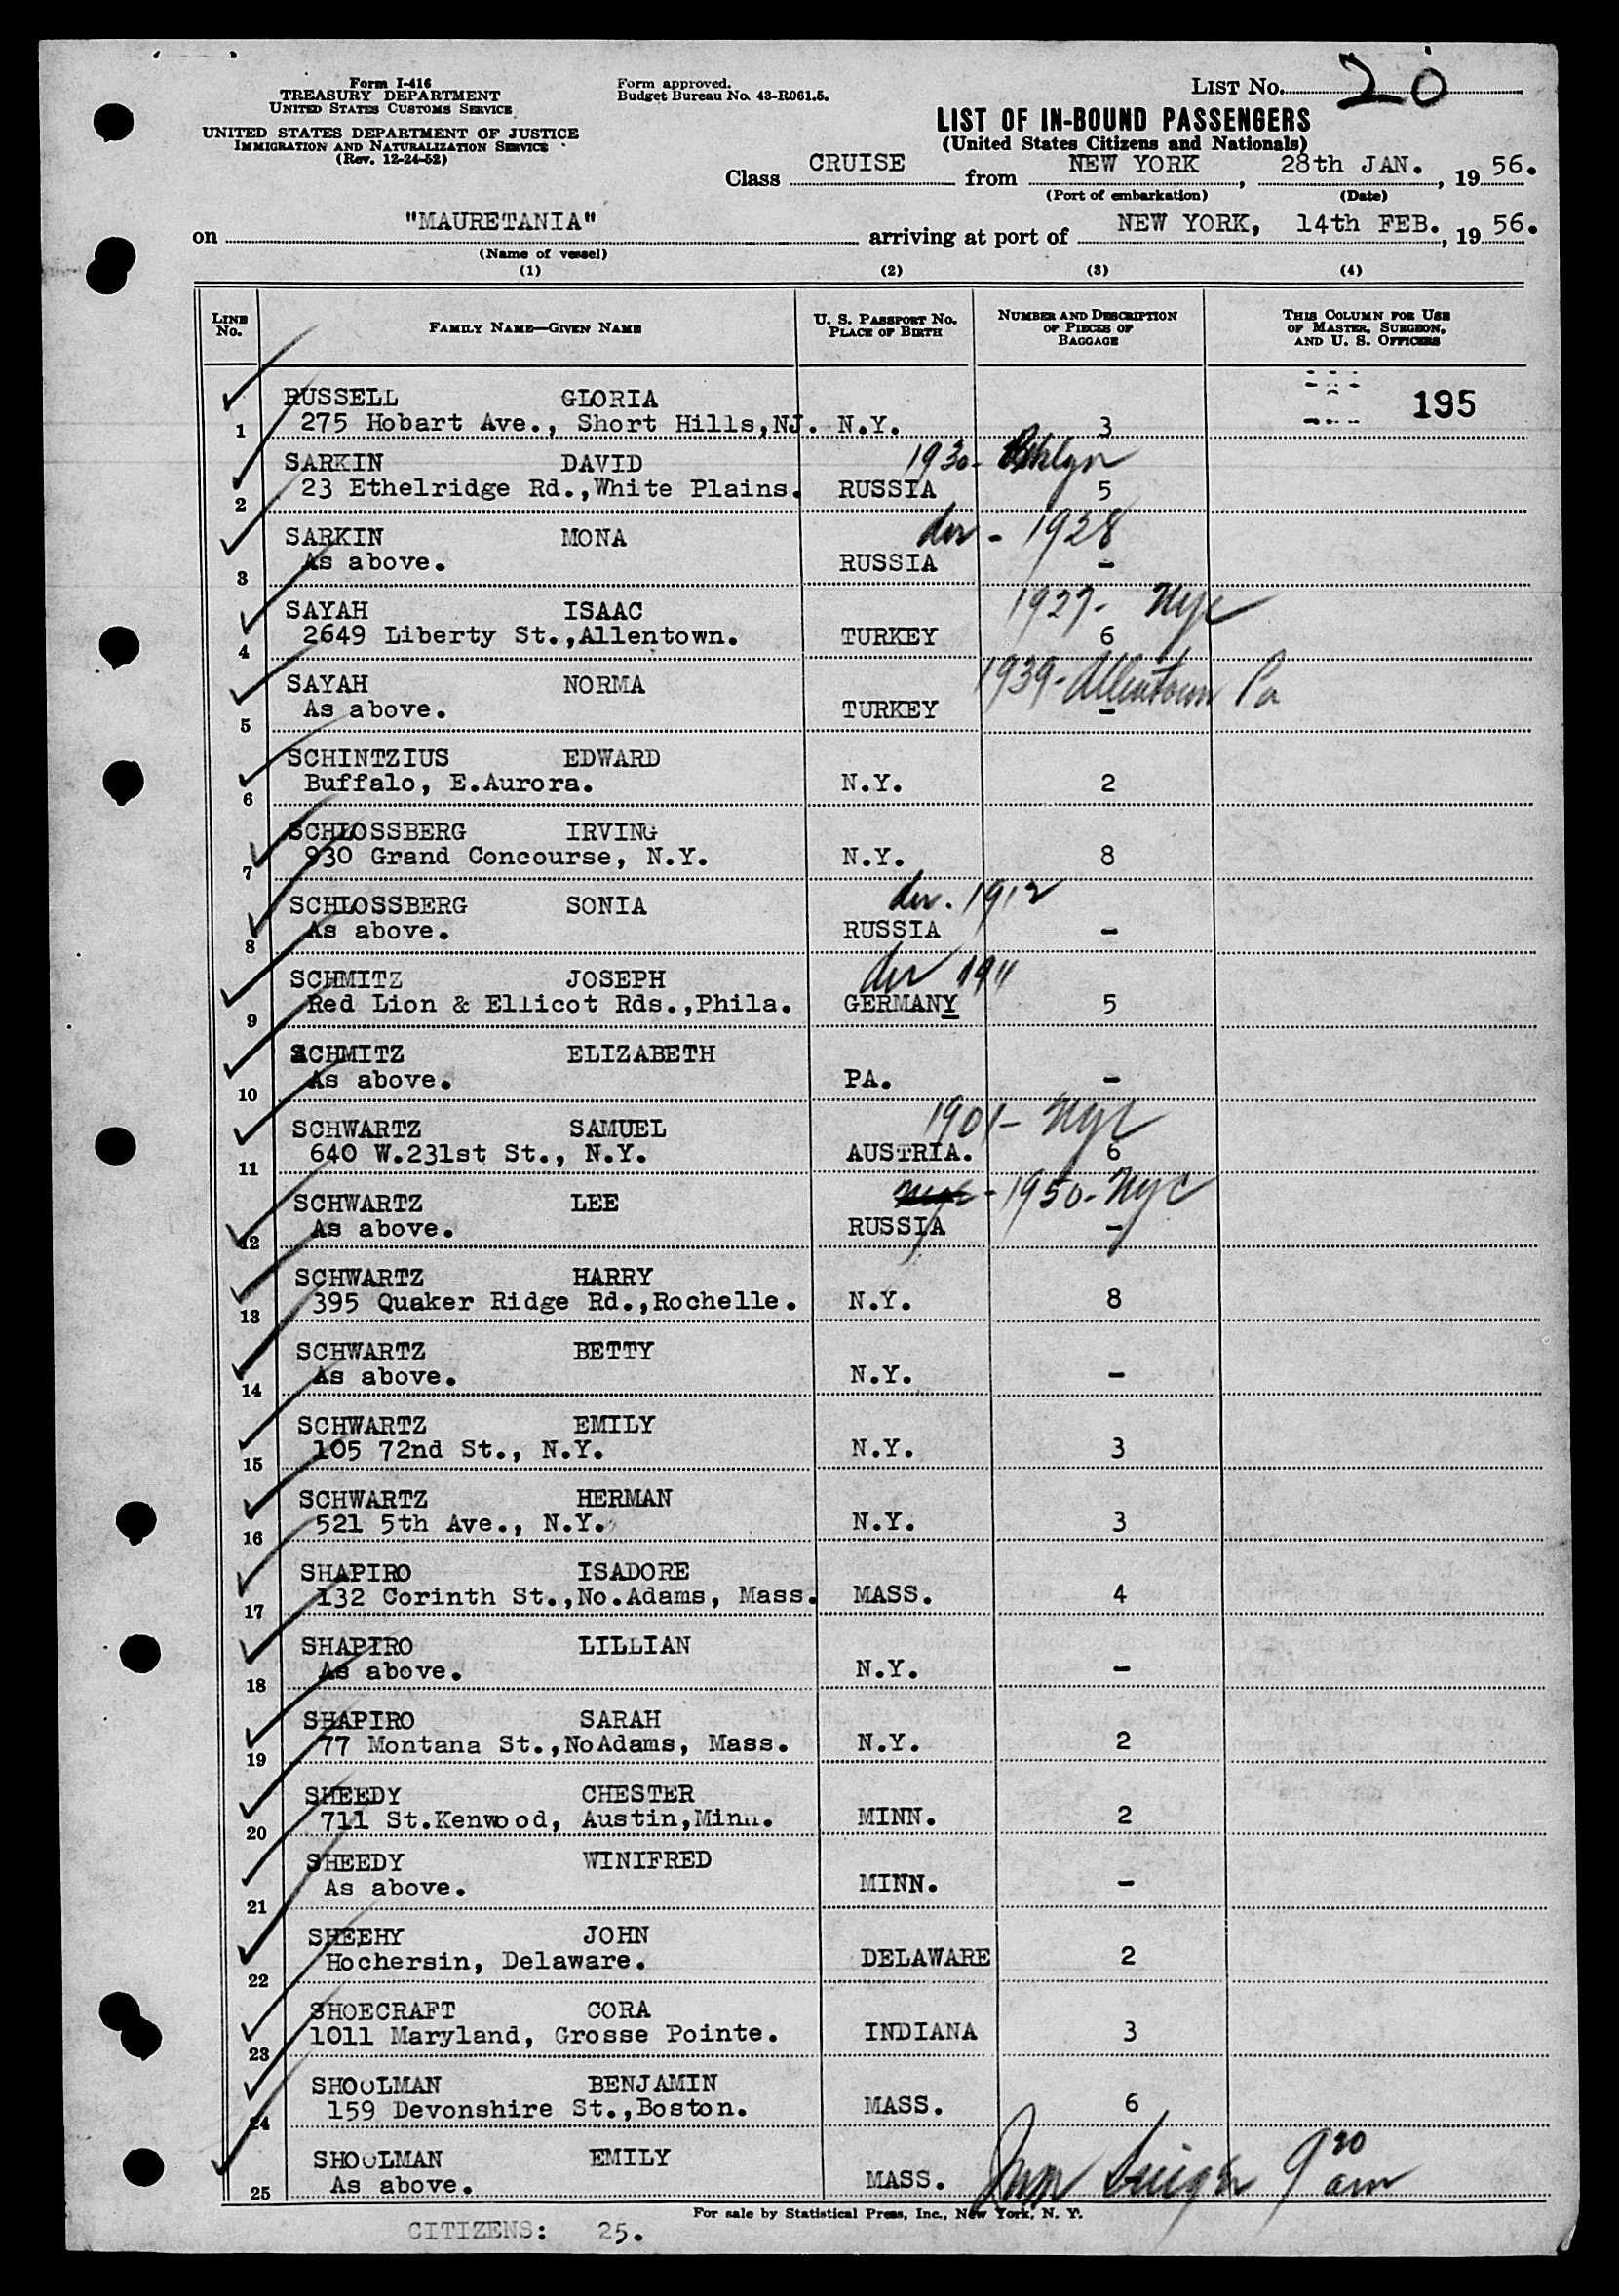 Form I-416
TREASURY DEPARTMENT
UNITED STATES CUSTOMS SERVICE
UNITED STATES DEPARTMENT OF JUSTICE
IMMIGRATION AND NATURALIZATION SERVICE
(Rev. 12-24-52)
Form approved.
Budget Bureau No. 43-R061.5.
LIST No. 20
LIST OF IN-BOUND PASSENGERS
(United States Citizens and Nationals)
Class CRUISE from NEW YORK, 28th JAN., 19 56.
(Port of embarkation) (Date)
on "MAURETANIA" arriving at port of NEW YORK, 14th FEB., 19 56.
(Name of vessel)
(1) (2) (3) (4)
LINE No. FAMILY NAME—GIVEN NAME U. S. PASSPORT No. PLACE OF BIRTH NUMBER AND DESCRIPTION OF PIECES OF BAGGAGE THIS COLUMN FOR USE OF MASTER, SURGEON, AND U. S. OFFICERS
RUSSELL GLORIA 195
1 275 Hobart Ave., Short Hills,NJ. N.Y. 3
SARKIN DAVID 1930- Bklyn
2 23 Ethelridge Rd.,White Plains. RUSSIA 5
SARKIN MONA der - 1928
3 As above. RUSSIA -
SAYAH ISAAC 1927- Nyc
4 2649 Liberty St.,Allentown. TURKEY 6
SAYAH NORMA 1939- Allentown Pa
5 As above. TURKEY -
SCHINTZIUS EDWARD
6 Buffalo, E.Aurora. N.Y. 2
SCHLOSSBERG IRVING
7 930 Grand Concourse, N.Y. N.Y. 8
SCHLOSSBERG SONIA der. 1912
8 As above. RUSSIA -
SCHMITZ JOSEPH der 1911
9 Red Lion & Ellicot Rds.,Phila. GERMANY 5
SCHMITZ ELIZABETH
10 As above. PA. -
SCHWARTZ SAMUEL 1901- Nyc
11 640 W.231st St., N.Y. AUSTRIA. 6
SCHWARTZ LEE - 1950- Nyc
12 As above. RUSSIA -
SCHWARTZ HARRY
13 395 Quaker Ridge Rd.,Rochelle. N.Y. 8
SCHWARTZ BETTY
14 As above. N.Y. -
SCHWARTZ EMILY
15 105 72nd St., N.Y. N.Y. 3
SCHWARTZ HERMAN
16 521 5th Ave., N.Y. N.Y. 3
SHAPIRO ISADORE
17 132 Corinth St.,No.Adams, Mass. MASS. 4
SHAPIRO LILLIAN
18 As above. N.Y. -
SHAPIRO SARAH
19 77 Montana St.,NoAdams, Mass. N.Y. 2
SHEEDY CHESTER
20 711 St.Kenwood, Austin,Minn. MINN. 2
SHEEDY WINIFRED
21 As above. MINN. -
SHEEHY JOHN
22 Hochersin, Delaware. DELAWARE 2
SHOECRAFT CORA
23 1011 Maryland, Grosse Pointe. INDIANA 3
SHOOLMAN BENJAMIN
24 159 Devonshire St.,Boston. MASS. 6
SHOOLMAN EMILY
25 As above. MASS. 9 20 am
For sale by Statistical Press, Inc., New York, N. Y.
CITIZENS: 25.